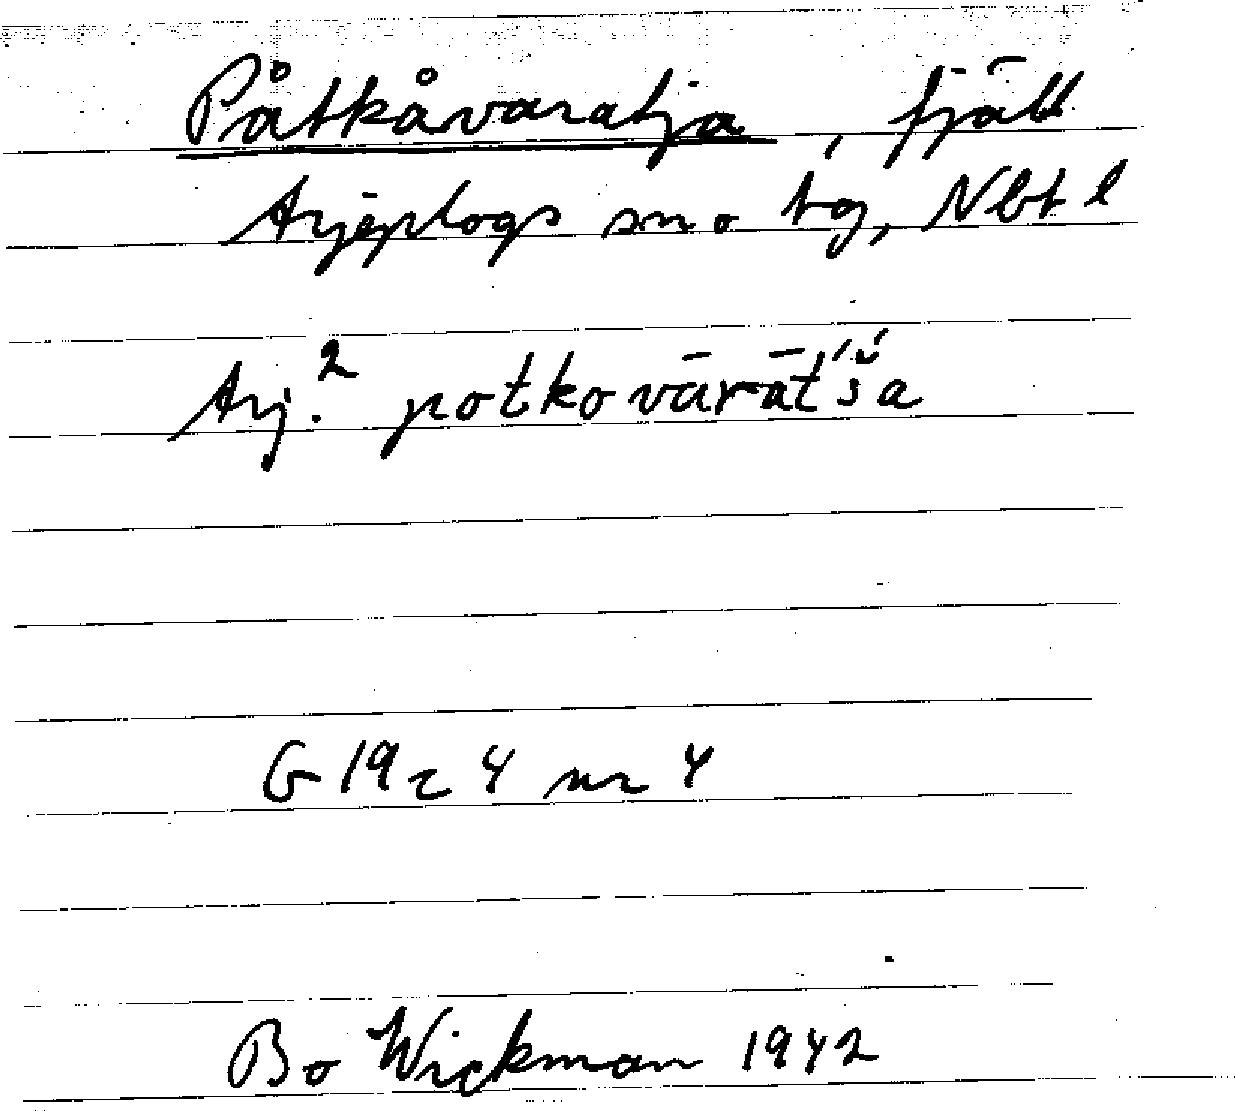 Påtkåvaratja, fjäll
Arjeplogs sn o tg, Nbt l
Arj.² potkovārāt́š́a
G 19 z 4 nr 4
Bo Wickman 1942